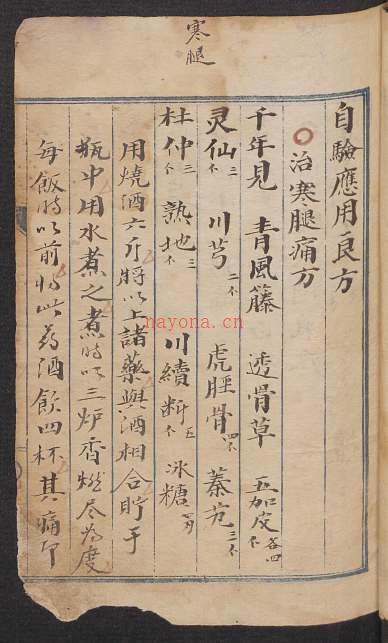 寒腿
自驗應用良方
治寒腿痛方
千年見 青風籐 透骨草 五加皮各四
灵仙三 川芎二 虎脛骨四 秦艽三
杜仲三 熟地三 川續斷五 冰糖
用燒酒六斤將以上諸藥與酒相合貯于
瓶中用水煮之煮時以三炉香燃尽為度
每飯時以前將此药酒飲四杯其痛即
nayona.cn